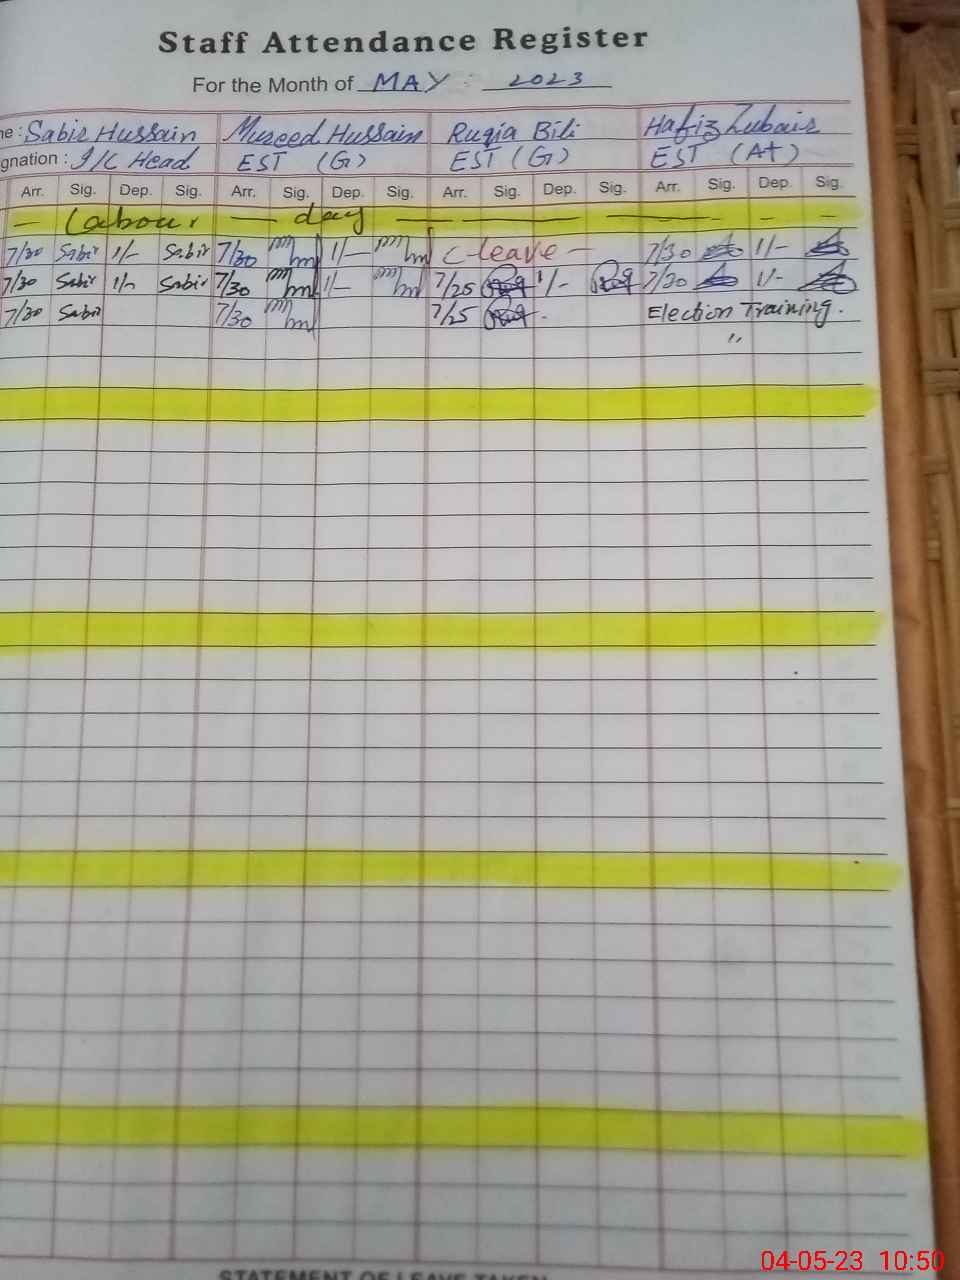 Staff Attendance Register
For the Month of MAY 2023
ne : Sabir Hussain Mureed Hussain Ruqia Bibi Hafiz Zubair
gnation : I/C Head EST (G) EST (G) EST (AT)
Arr. Sig. Dep. Sig. Arr. Sig. Dep. Sig. Arr. Sig. Dep. Sig. Arr. Sig. Dep. Sig.
— Labour — day — — — — — —
7/30 Sabir 1/- Sabir 7/30 1/- C leave - 7/30 1/-
7/30 Sabir 1/- Sabir 7/30 1/- 7/25 1/- 7/20 1/-
7/30 Sabir 7/30 7/25 Election Training.
"
STATEMENT OF LEAVE TAKEN
04-05-23 10:50